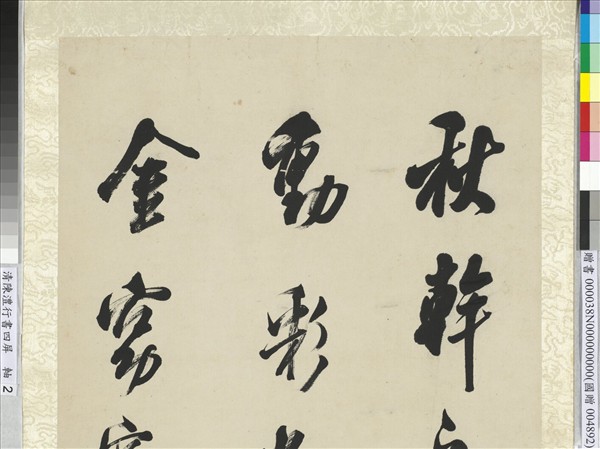 秋幹
彩
金窈
清陳澧行書四屏 軸 2
贈書 000038N000000000(國贈 004892)